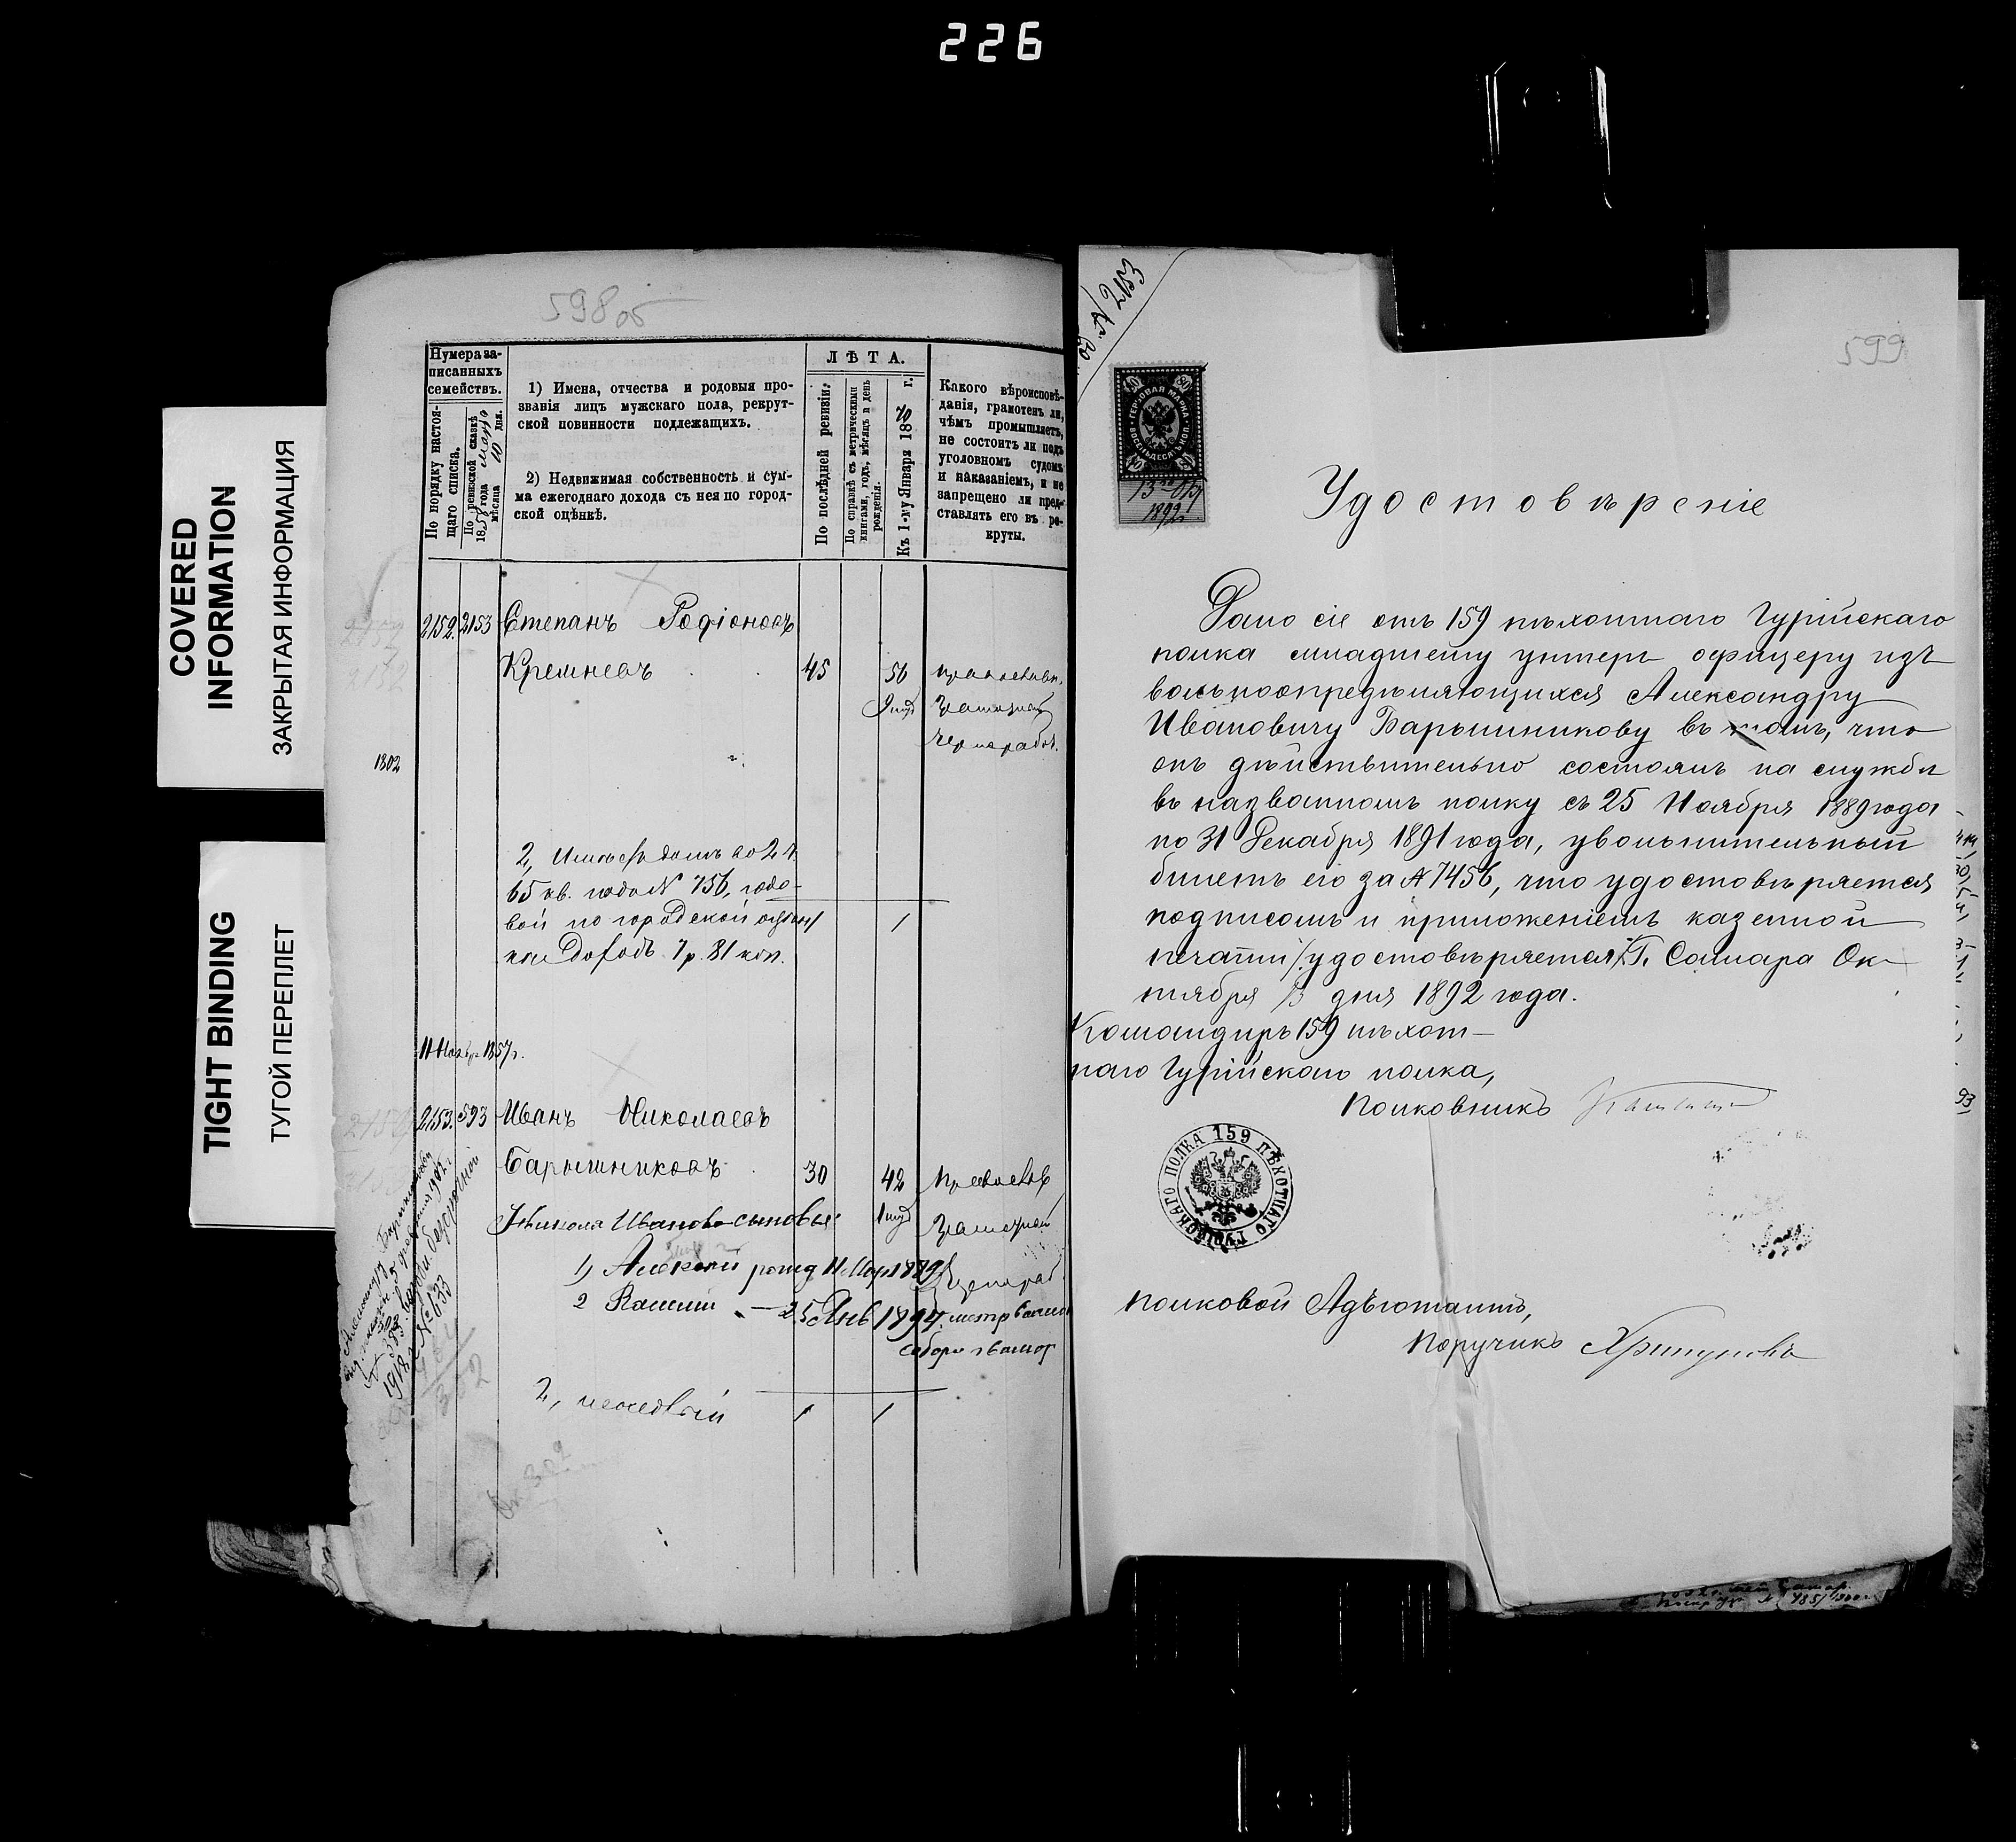 226
COVERED
INFORMATION
ЗАКРЫТАЯ ИНФОРМАЦИЯ
TIGHT BINDING
ТУГОЙ ПЕРЕПЛЕТ
598 об
Нумера за-
писанныхъ
семействъ.
По порядку настоя-
щаго списка.
По ревизской сказкѣ
1858 года марта
мѣсяца 10 дня.
1) Имена, отчества и родовыя про-
званія лицъ мужскаго пола, рекрут-
ской повинности подлежащихъ.
2) Недвижимая собственность и сум-
ма ежегоднаго дохода съ нея по город-
ской оцѣнкѣ.
ЛѢТА.
По послѣдней ревизіи.
По справкѣ съ метрическими
книгами, годъ, мѣсяцъ и день
рожденія.
Къ 1-му Января 1870 г.
Какого вѣроисповѣ-
данія, грамотенъ ли,
чѣмъ промышляетъ,
не состоитъ ли подъ
уголовномъ судомъ
и наказаніемъ, и не
запрещено ли пред-
ставлять его въ ре-
круты.
2152 2153 Степанъ Родіоновъ
Кремневъ 45 56 православн.
чернорабоч.
1802
2, Имѣетъ домъ во 2 ч.
65 кв. подъ № 756, годо-
вой по городской оцѣн-
кѣ доходъ 7 р. 81 коп.
1
11 Ноября 1857 г.
2153. 593 Иванъ Николаевъ
Барышниковъ 30 42 православ
Николая Иванова сыновья
1, Алексѣй рожд 11 Мар 1889
2 25 Янв 1894
2, неимѣетъ 1 1
1912 № 133
по № 2153
599
ГЕРБОВАЯ МАРКА
ВОСЕМЬДЕСЯТЪ КОП.
80 80
13 Окт
1892
Удостовѣреніе
Дано сіе отъ 159 пѣхотнаго Гурійскаго
полка младшему унтеръ офицеру изъ
вольноопредѣляющихся Александру
Ивановичу Барышникову въ томъ, что
онъ дѣйствительно состоялъ на службѣ
въ названномъ полку съ 25 Ноября 1889 года
по 31 Декабря 1891 года, увольнительный
билетъ его за № 7456, что удостовѣряется
подписомъ и приложеніемъ казенной
печати /удостовѣряется/. Г. Самара Ок-
тября 13 дня 1892 года.
Командиръ 159 пѣхот-
наго Гурійскаго полка,
Полковникъ
159 ПѢХОТНАГО ГУРІЙСКАГО ПОЛКА
Полковой Адъютантъ,
Поручикъ Хрипуновъ
93